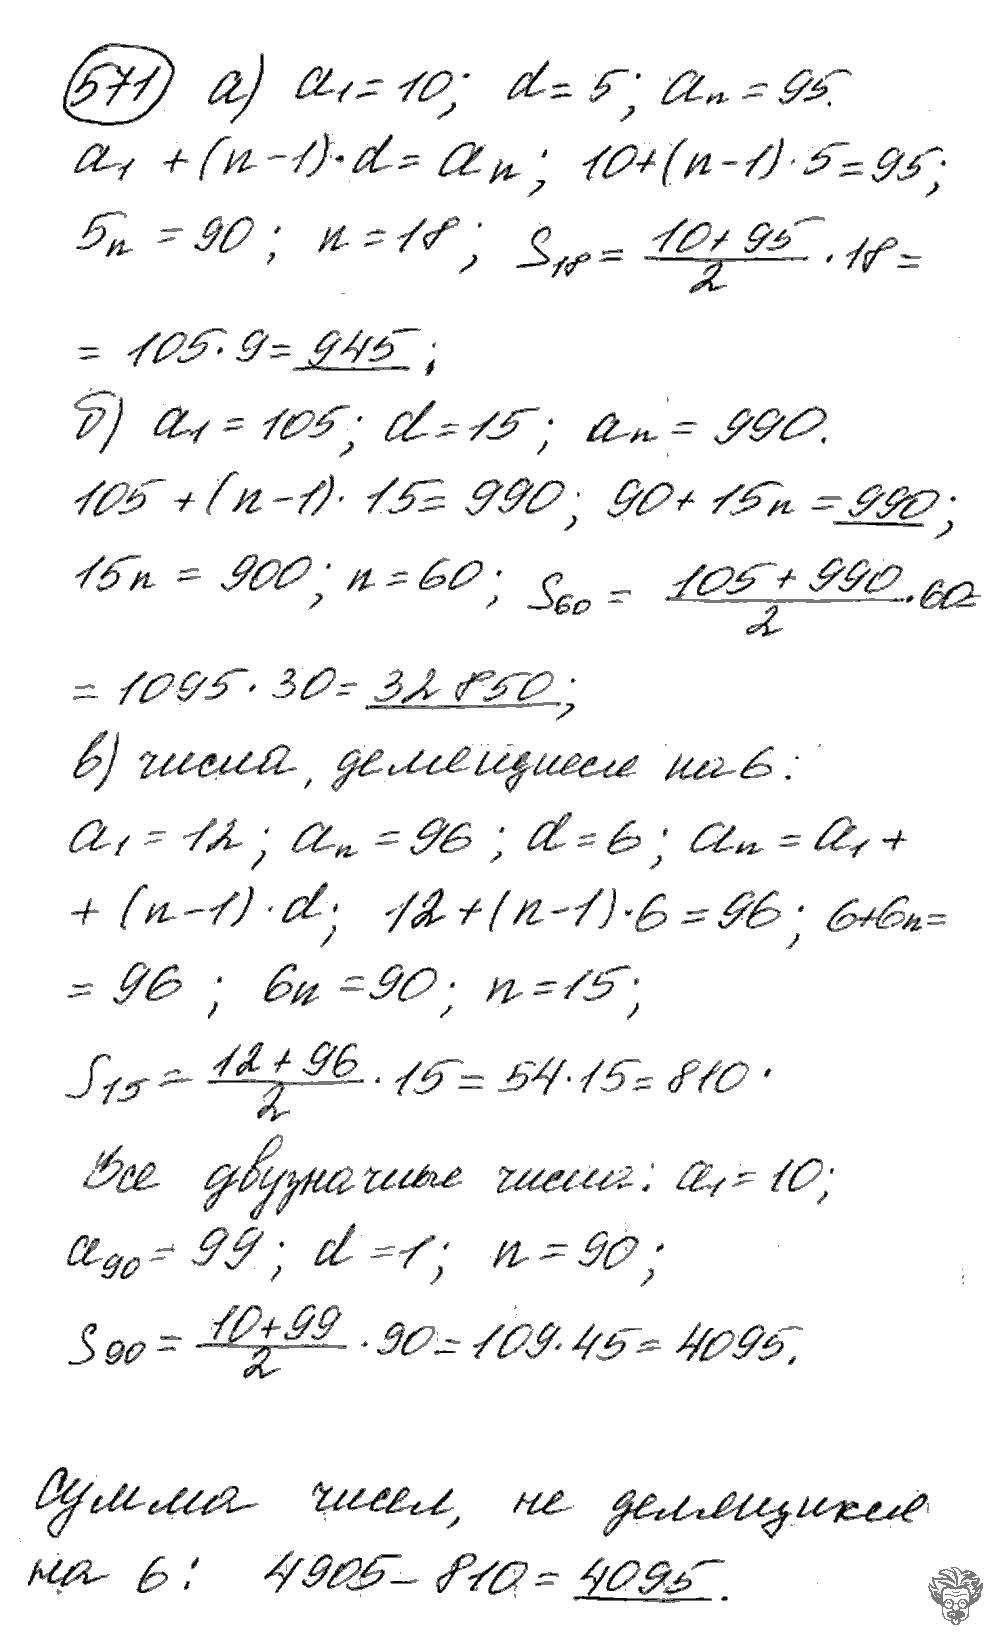 571 а) a₁ = 10; d = 5; aₙ = 95.
a₁ + (n-1)·d = aₙ; 10+(n-1)·5 = 95;
5n = 90; n = 18; S₁₈ = (10+95)/2 · 18 =
= 105·9 = 945;
б) a₁ = 105; d = 15; aₙ = 990.
105 + (n-1)·15 = 990; 90 + 15n = 990;
15n = 900; n = 60; S₆₀ = (105+990)/2 · 60 =
= 1095·30 = 32 850;
в) числа, делящиеся на 6:
a₁ = 12; aₙ = 96; d = 6; aₙ = a₁ +
+ (n-1)·d; 12+(n-1)·6 = 96; 6+6n =
= 96; 6n = 90; n = 15;
S₁₅ = (12+96)/2 · 15 = 54·15 = 810.
Все двузначные числа: a₁ = 10;
a₉₀ = 99; d = 1; n = 90;
S₉₀ = (10+99)/2 · 90 = 109·45 = 4095.
Сумма чисел, не делящихся
на 6: 4905 - 810 = 4095.